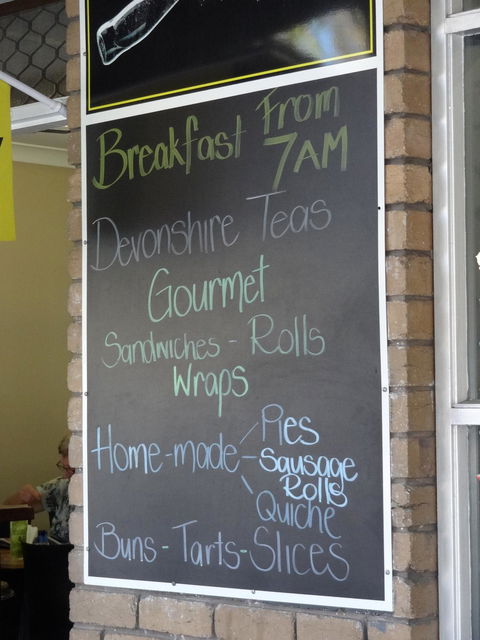 Breakfast From
7AM
Devonshire Teas
Gourmet
Sandwiches - Rolls
Wraps
Home-made - Pies
Sausage
Rolls
Quiche
Buns - Tarts - Slices